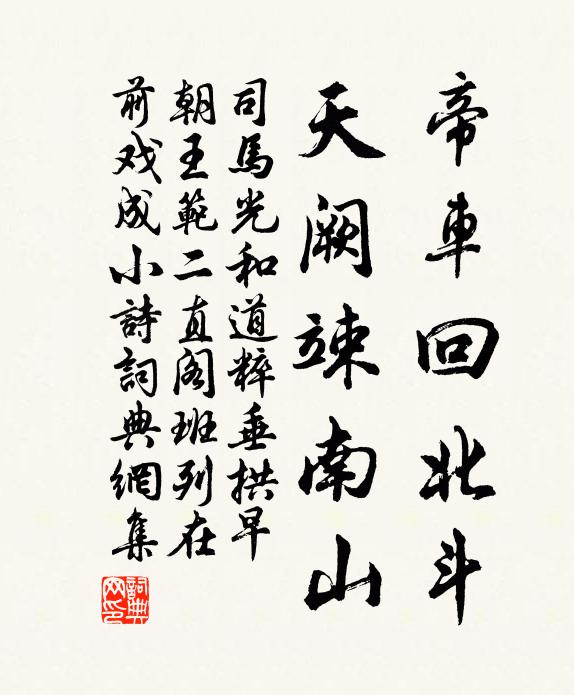 帝車回北斗
天闕竦南山
司馬光和道粹垂拱早
朝王範二直阁班列在
前戏成小詩詞典網集
詞典网印